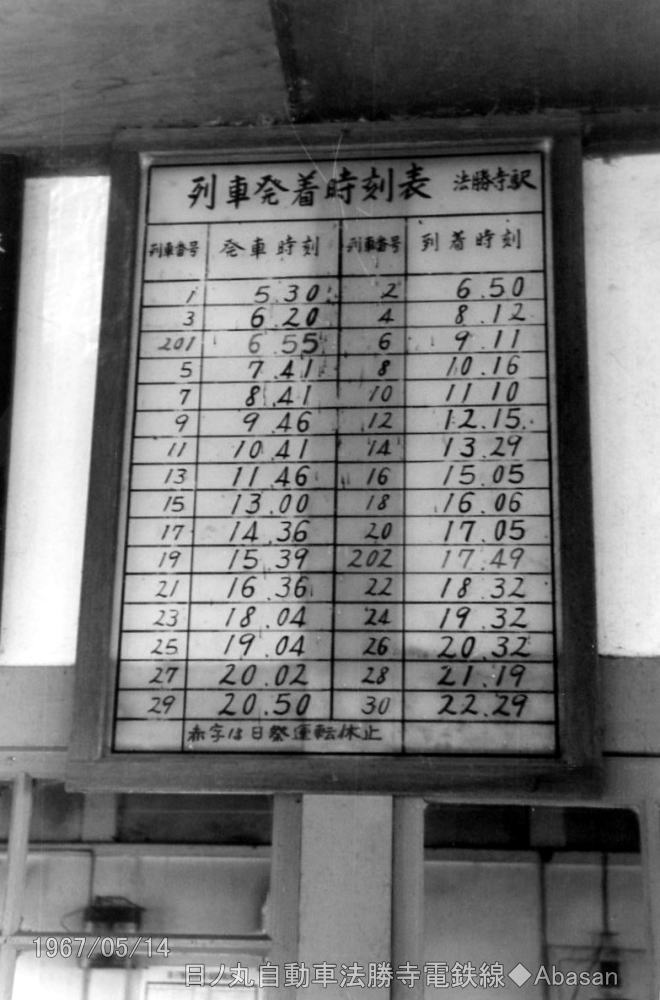 列車発着時刻表 法勝寺駅
列車番号 発車時刻 列車番号 到着時刻
1 5.30 2 6.50
3 6.20 4 8.12
201 6.55 6 9.11
5 7.41 8 10.16
7 8.41 10 11 10
9 9.46 12 12.15
11 10.41 14 13.29
13 11.46 16 15.05
15 13.00 18 16.06
17 14.36 20 17.05
19 15.39 202 17.49
21 16.36 22 18.32
23 18.04 24 19.32
25 19.04 26 20.32
27 20.02 28 21.19
29 20.50 30 22.29
赤字は日祭運転休止
1967/05/14
日ノ丸自動車法勝寺電鉄線◆Abasan